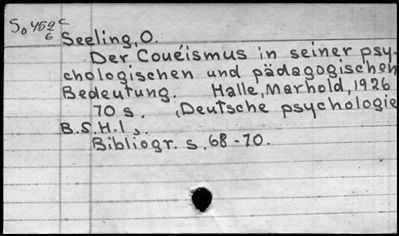 So 459 c
6
Seeling, O.
Der Couéismus in seiner psy-
chologischen und pädagogischen
Bedeutung. Halle, Marhold, 1926
70 s. (Deutsche psychologie
B.S.H.1,.
Bibliogr. s. 68-70.